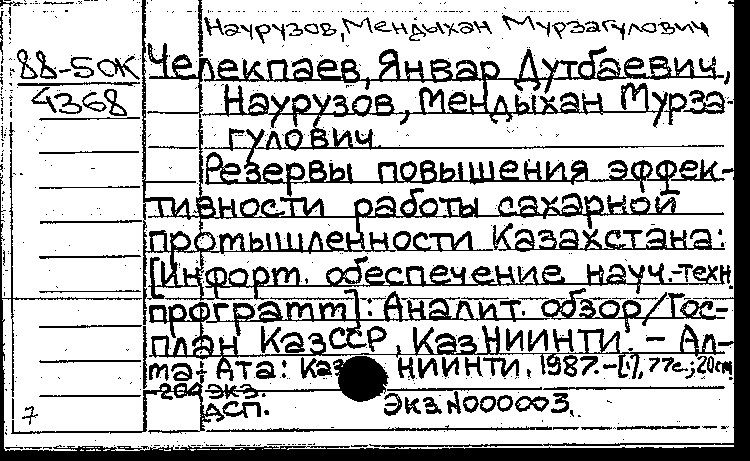 Наурузов, Мендыхан Мурзагулович
88-50К Челекпаев, Январ Дутбаевич,
4368 Наурузов, Мендыхан Мурза-
гулович.
Резервы повышения эффек-
тивности работы сахарной
промышленности Казахстана:
[Информ. обеспечение науч.-техн
программ]: Аналит. обзор/Гос-
план КазССР, КазНИИНТИ. – Ал-
ма-Ата: Каз НИИНТИ, 1987.-[1], 77с.; 20см
-204 экз.
АСП. Экз.N000003.
7